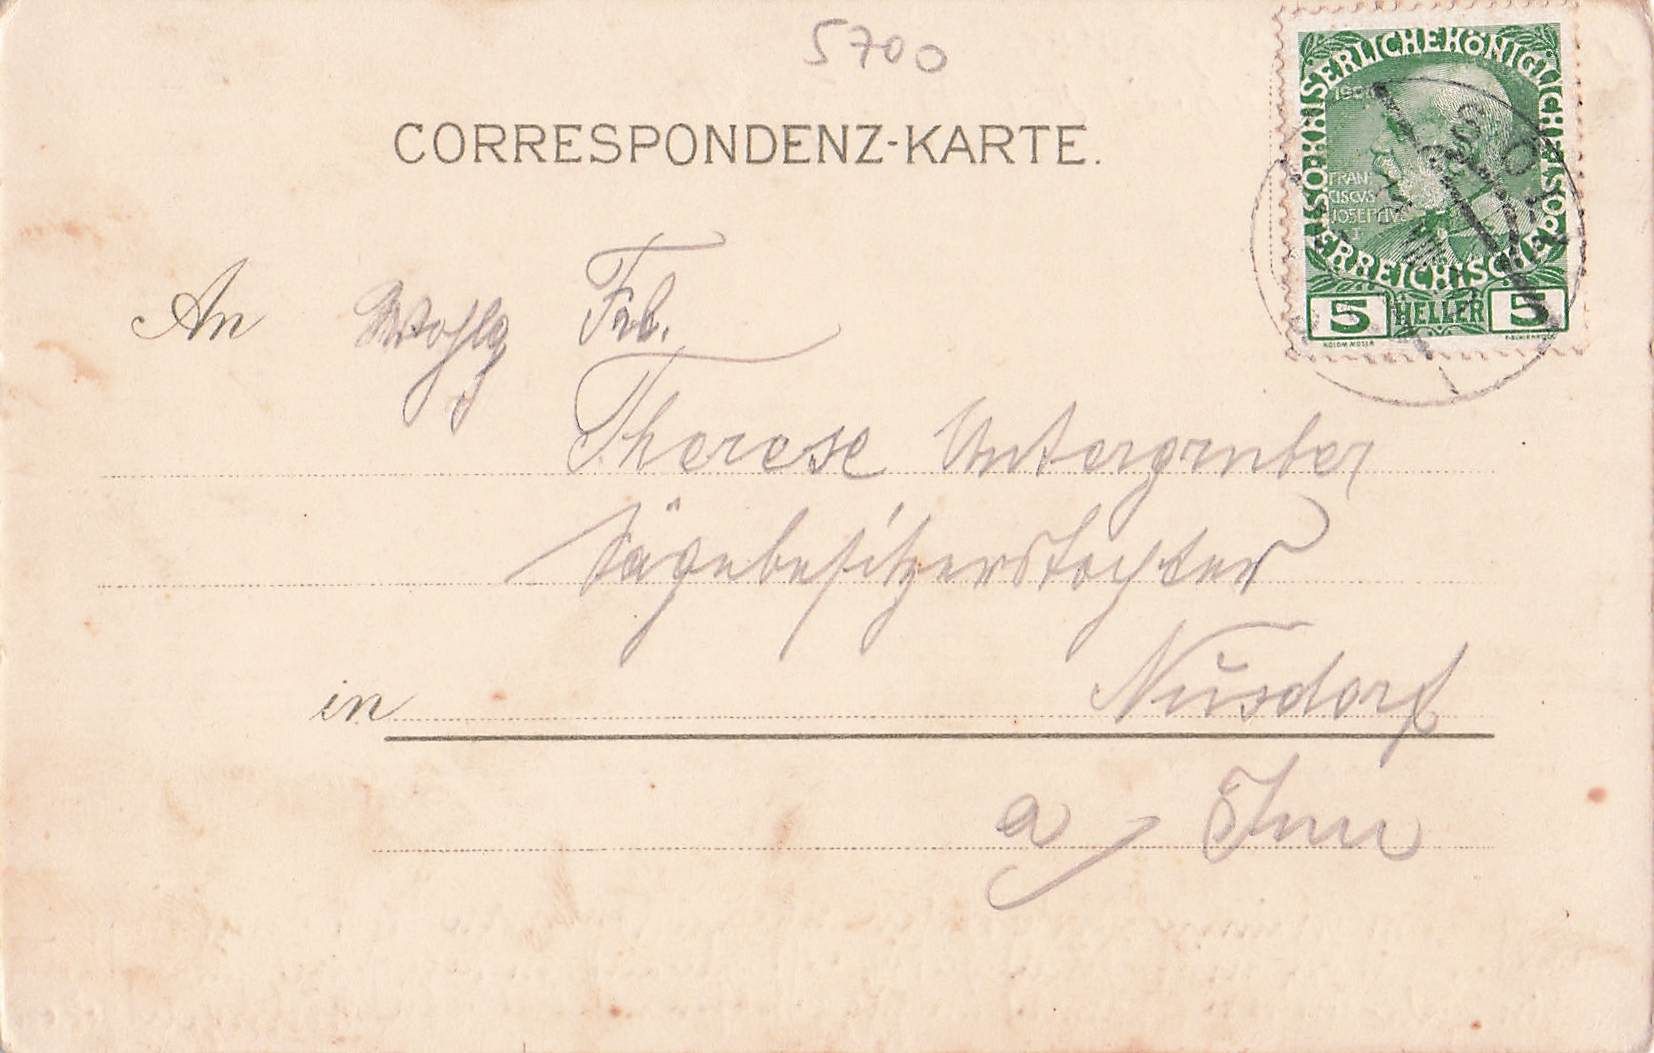 5700
CORRESPONDENZ-KARTE.
KAISERLICHEKÖNIGLICHE
ÖSTERREICHISCHE
FRAN
CISCVS
JOSEPHVS
I
5 HELLER 5
An Frl.
Therese Untergruber
Sägebesitzerstochter
in Nusdorf
a Inn